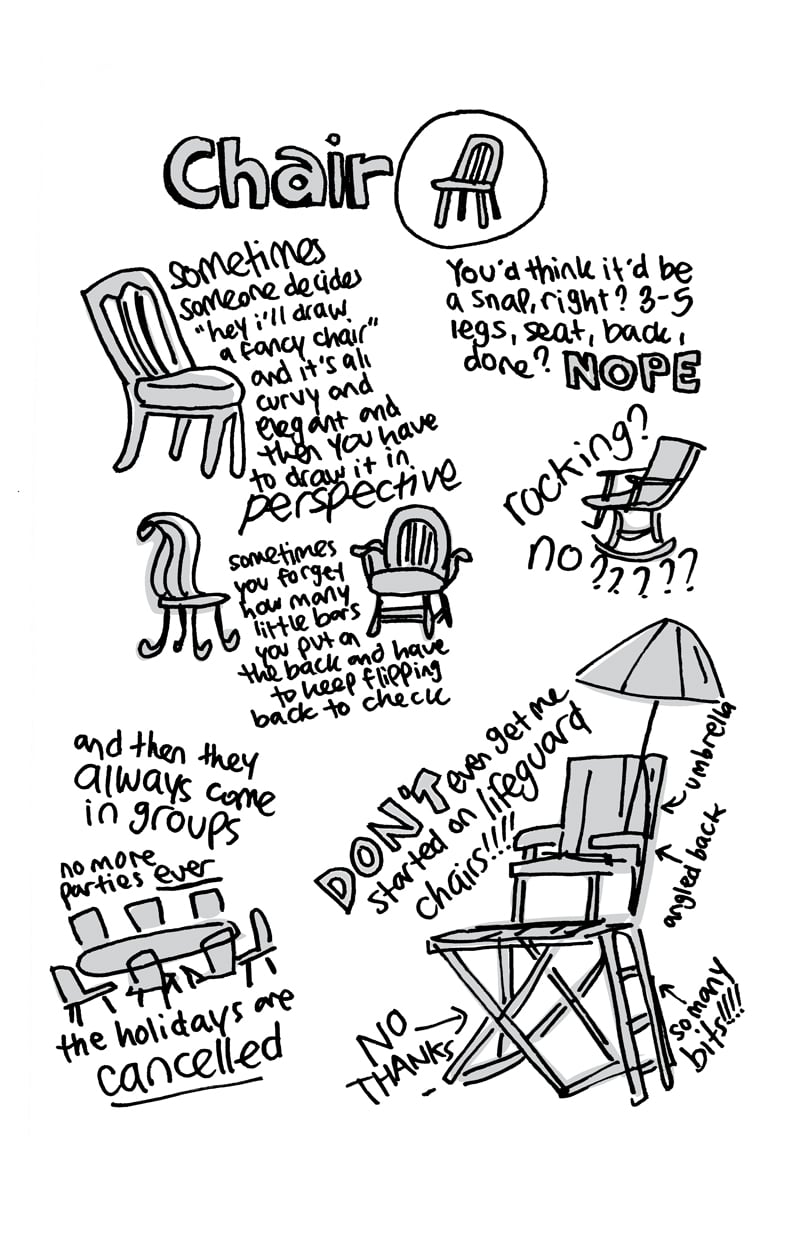 Chair
You'd think it'd be
a snap, right? 3-5
legs, seat, back,
done? NOPE
sometimes
someone decides
"hey i'll draw
a fancy chair"
and it's all
curvy and
elegant and
then you have
to draw it in
perspective
rocking?
no?????
sometimes
you forget
how many
little bars
you put on
the back and have
to keep flipping
back to check
and then they
always come
in groups
no more
parties ever
the holidays are
cancelled
DON'T even get me
started on lifeguard
chairs!!!!
umbrella
angled back
so many
bits!!!!
NO
THANKS